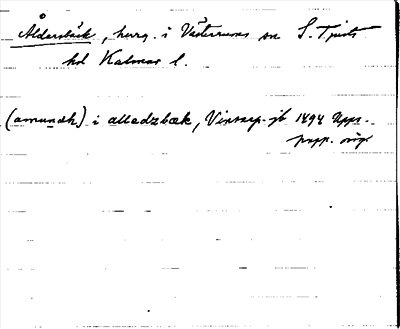 Åldersbäck, herrg. i Västrums sn S. Tjusts
hd Kalmar l.
(amundh) i alledzbæk, Vinsarp. jb 1494 Upps.
papp. orig.